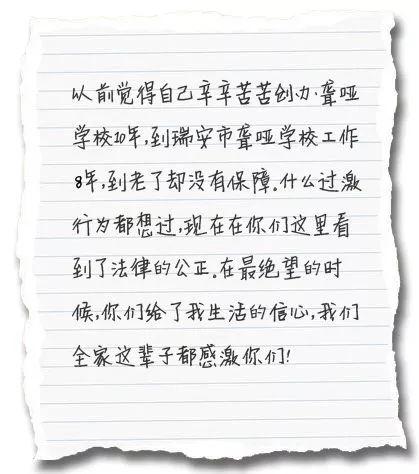 以前觉得自己辛辛苦苦创办聋哑
学校10年,到瑞安市聋哑学校工作
8年,到老了却没有保障。什么过激
行为都想过,现在在你们这里看
到了法律的公正。在最绝望的时
候,你们给了我生活的信心,我们
全家这辈子都感激你们!